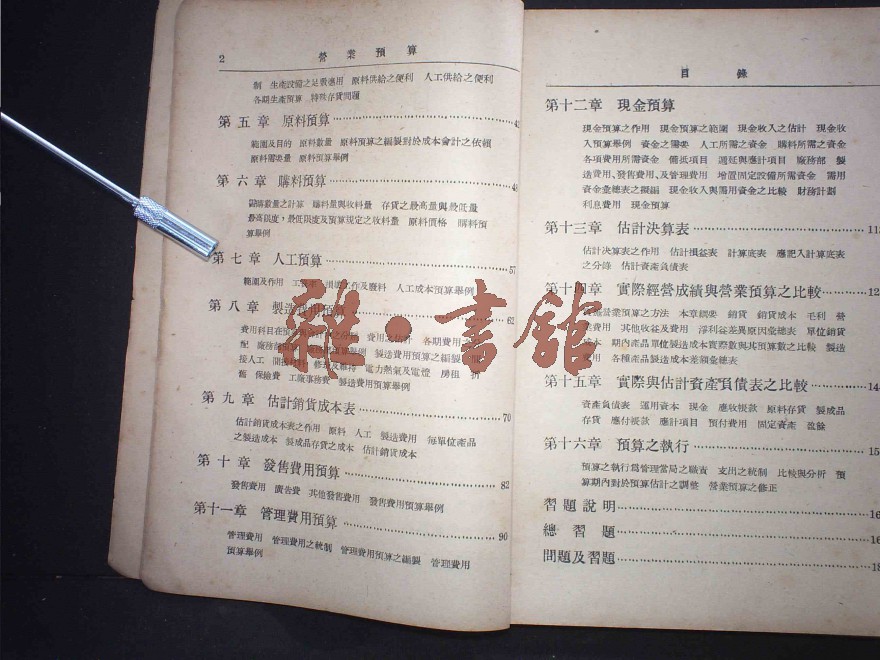 2 營業預算
制 生產設備之足敷應用 原料供給之便利 人工供給之便利
各期生產預算 特殊存貨問題
第五章 原料預算
範圍及目的 原料數量 原料預算之編製對於成本會計之依賴
原料需要量 原料預算舉例
第六章 購料預算
購數量之計算 購料量與收料量 存貨之最高量與最低量
最高限度,最低限度及預算規定之收料量 原料價格 購料預
算舉例
第七章 人工預算 57
範圍及作用 廢料 人工成本預算舉例
第八章 製造費用預算
費用科目 費用之估計 各期費用
配 廠務 製造費用預算之編製
接人工 間接 電力熱氣及電燈 房租 折
舊 保險費 工廠事務費 製造費用預算舉例
第九章 估計銷貨成本表 70
估計銷貨成本表之作用 原料 人工 製造費用 每單位產品
之製造成本 製成品存貨之成本 估計銷貨成本
第十章 發售費用預算 82
發售費用 廣告費 其他發售費用 發售費用預算舉例
第十一章 管理費用預算 90
管理費用 管理費用之統制 管理費用預算之編製 管理費用
預算舉例
目錄
第十二章 現金預算
現金預算之作用 現金預算之範圍 現金收入之估計 現金收
入預算舉例 資金之需要 人工所需之資金 購料所需之資金
各項費用所需資金 備抵項目 遞延與應計項目 廠務部 製
造費用、發售費用、及管理費用 增置固定設備所需資金 需用
資金彙總表之擬編 現金收入與需用資金之比較 財務計劃
利息費用 現金預算
第十三章 估計決算表
估計決算表之作用 估計損益表 計算底表 應記入計算底表
之分錄 估計資產負債表
第十四章 實際經營成績與營業預算之比較
營業預算之方法 本章綱要 銷貨 銷貨成本 毛利 營
業費用 其他收益及費用 淨利差異原因彙總表 單位銷貨
成本 期內產品單位製造成本實際數與其預算數之比較 製造
費用 各種產品製造成本差額彙總表
第十五章 實際與估計資產負債表之比較
資產負債表 運用資本 現金 應收帳款 原料存貨 製成品
存貨 應付帳款 應計項目 預付費用 固定資產 盈餘
第十六章 預算之執行
預算之執行為管理當局之職責 支出之統制 比較與分析 預
算期內對於預算估計之調整 營業預算之修正
習題說明
總習題
問題及習題
雜·書館